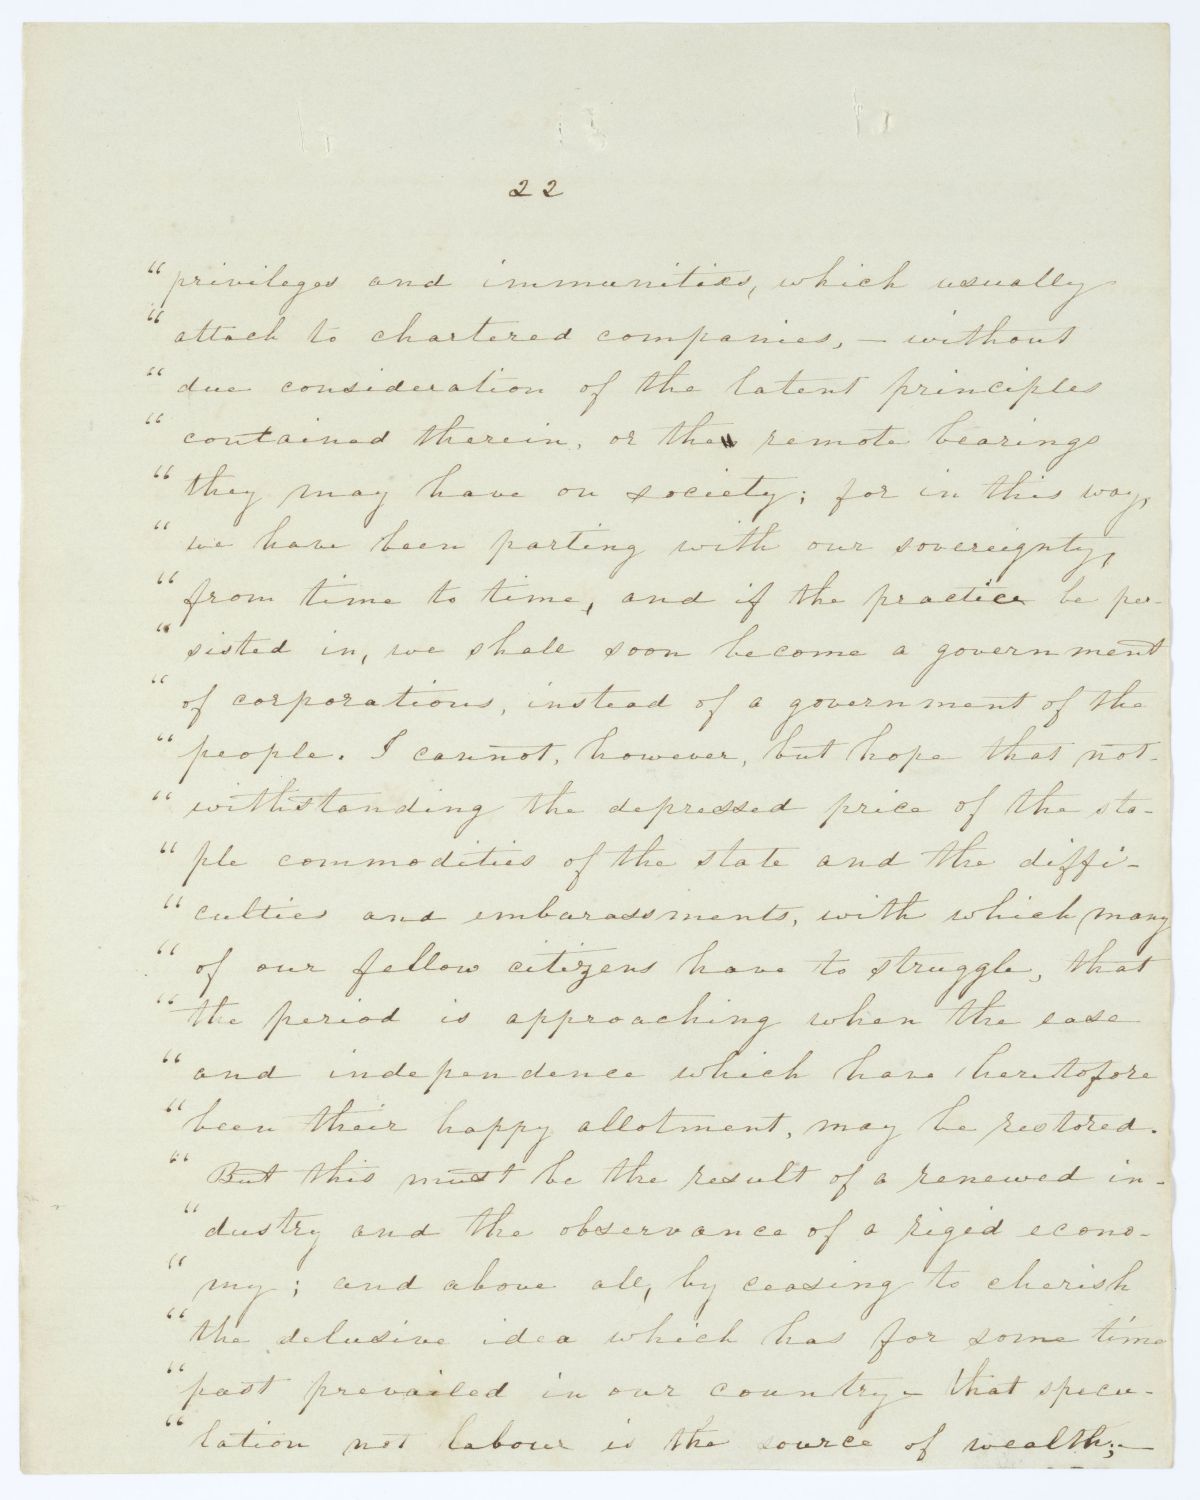 22
“privileges and immunities, which usually
“attach to chartered companies, – without
“due consideration of the latent principles
“contained therein, or the remote bearings
“they may have on society; for in this way,
“we have been parting with our sovereignty,
“from time to time, and if the practice be per-
“sisted in, we shall soon become a government
“of corporations, instead of a government of the
“people. I cannot, however, but hope that not-
“withstanding the depressed price of the sta-
“ple commodities of the state and the diffi-
“culties and embarassments, with which many
“of our fellow citizens have to struggle, that
“the period is approaching when the ease
“and independence which have heretofore
“been their happy allotment, may be restored.
“But this must be the result of a renewed in-
“dustry and the observance of a rigid econo-
“my; and above all, by ceasing to cherish
“the delusive idea which has for some time
“past prevailed in our country – that specu-
“lation not labour is the source of wealth;–